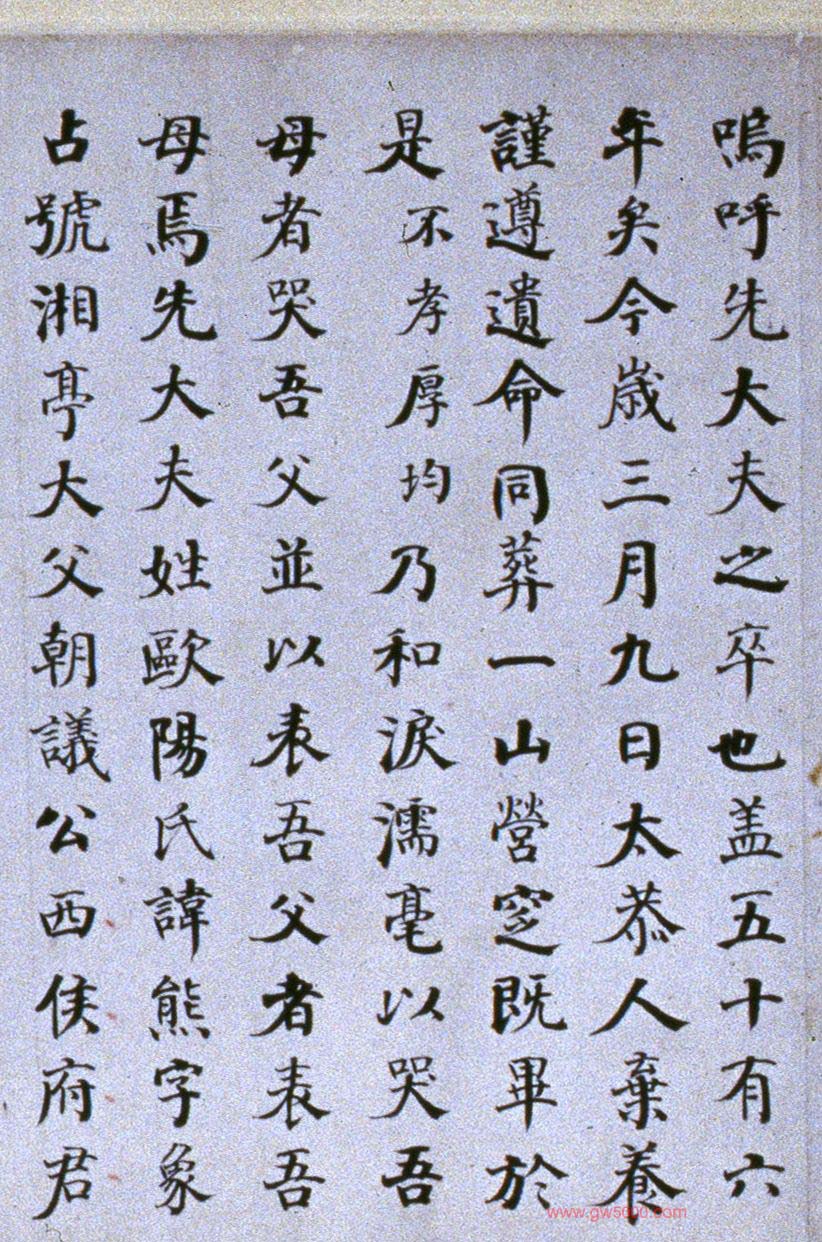 嗚呼先大夫之卒也盖五十有六
年矣今歳三月九日太恭人棄養
謹遵遺命同葬一山營窆既畢於
是不孝厚均乃和淚濡毫以哭吾
母者哭吾父並以表吾父者表吾
母焉先大夫姓歐陽氏諱熊字象
占號湘亭大父朝議公西侯府君
www.gw5000.com